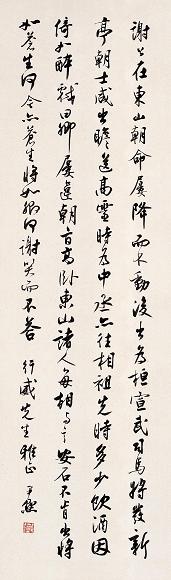 謝公在東山朝命屢降而不動後出為桓宣武司馬將發新
亭朝士咸出瞻送高靈時為中丞亦往相祖先時多少飲酒因
倚如醉戲曰卿屢違朝旨高臥東山諸人每相與言安石不肯出將
如蒼生何今亦蒼生將如卿何謝笑而不答 行威先生雅正 尹默